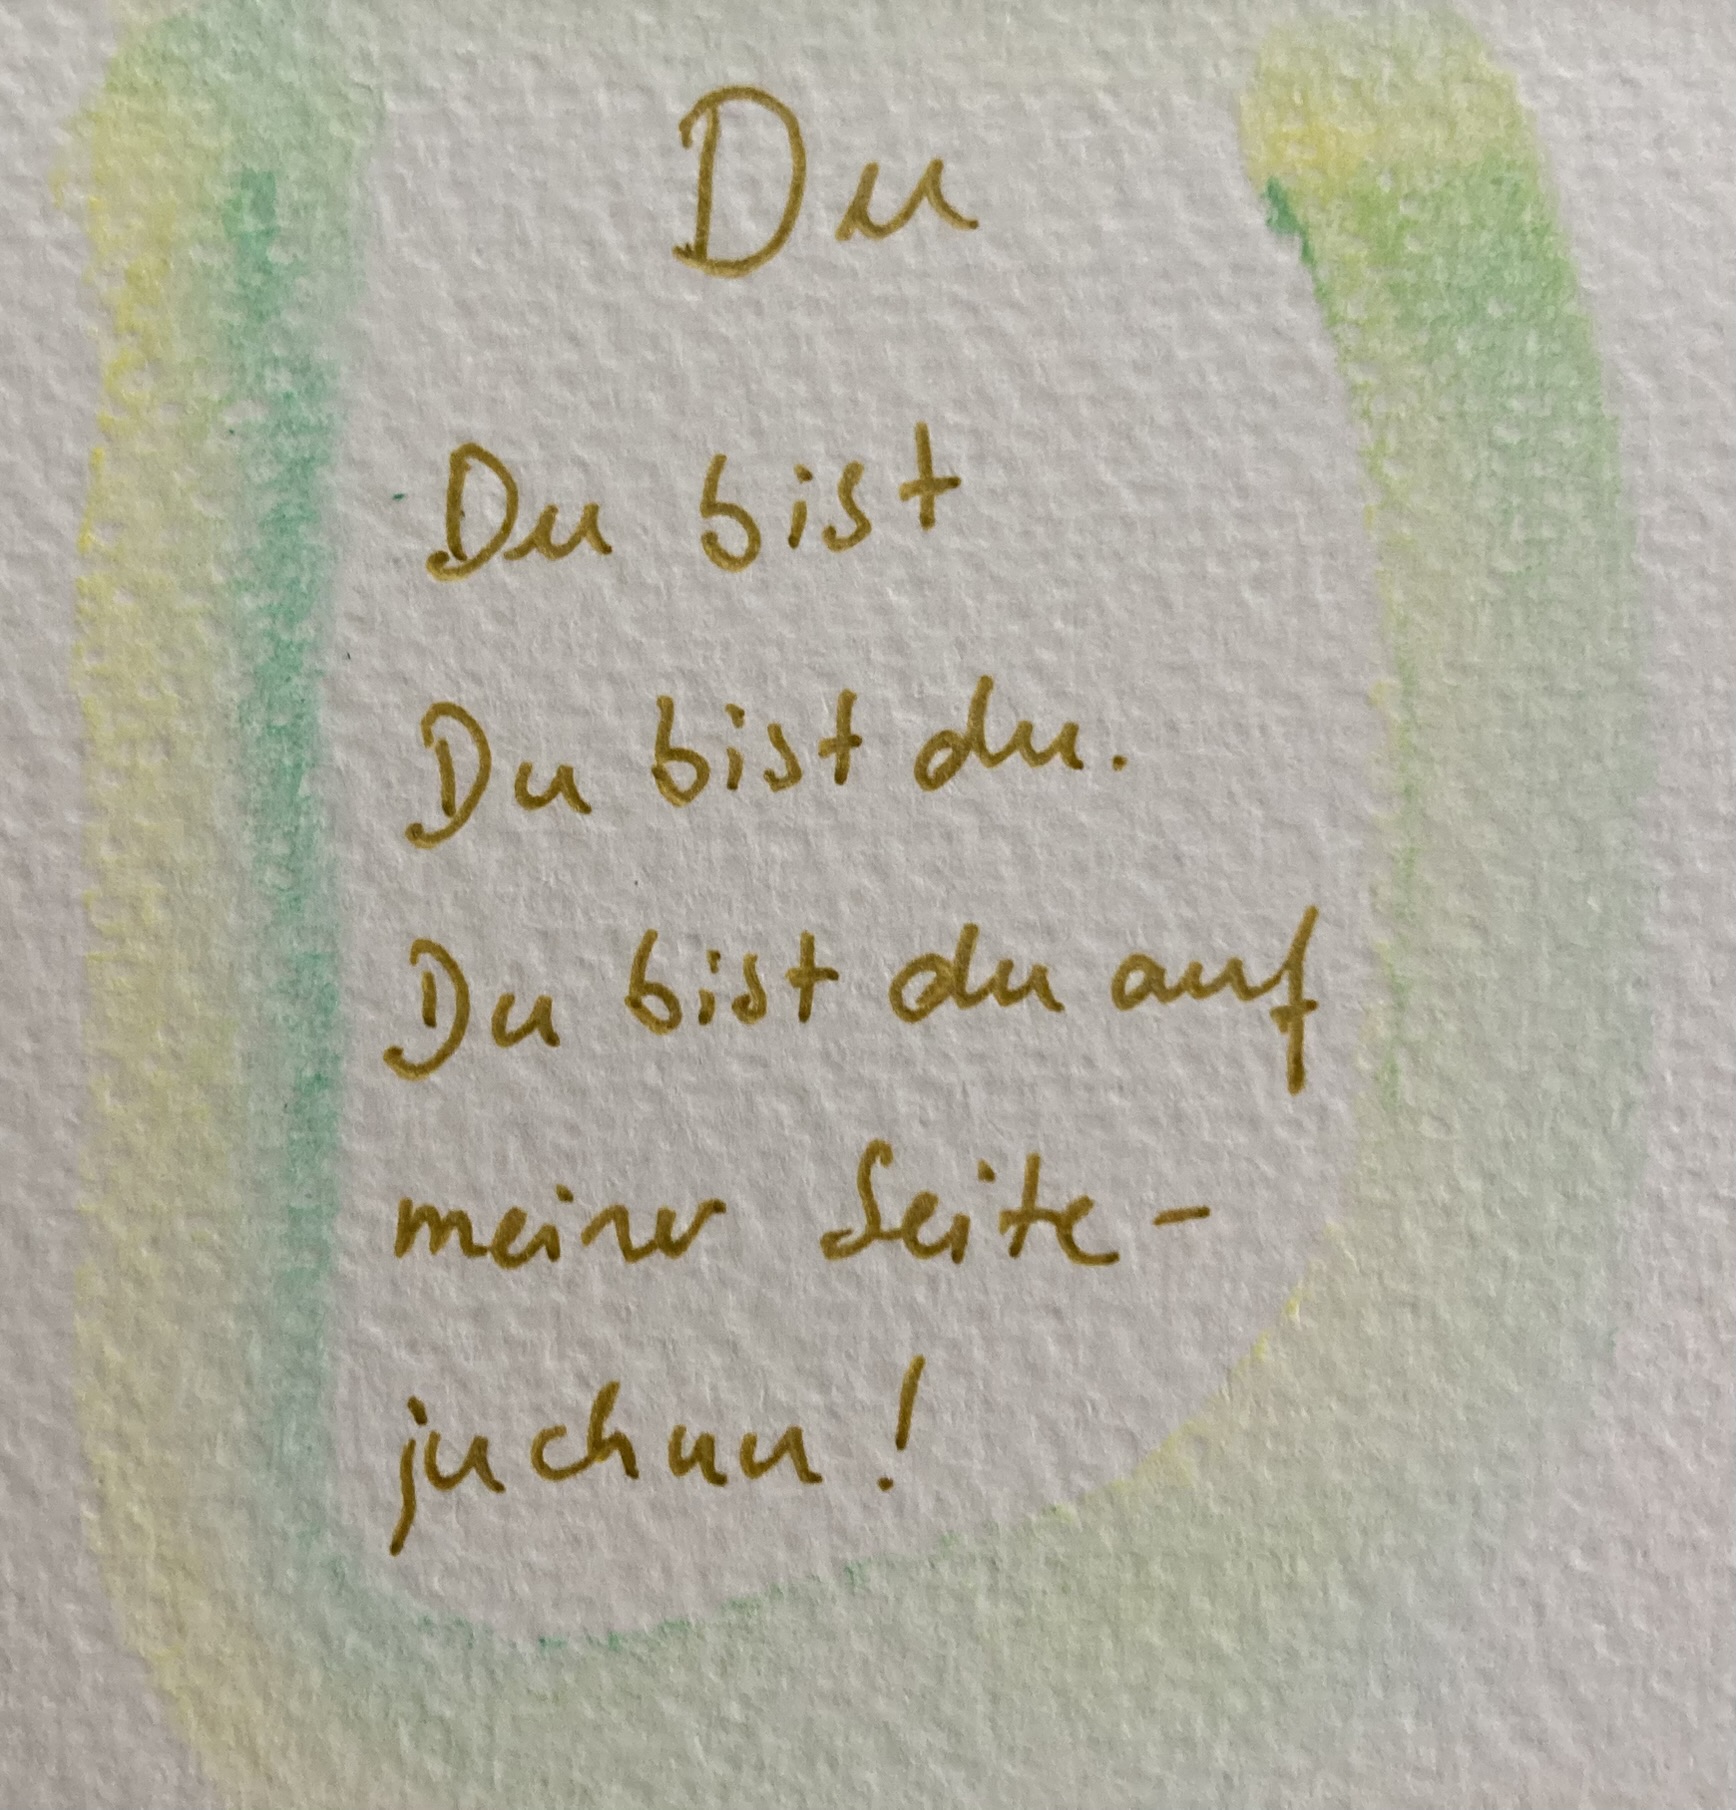 Du
Du bist
Du bist du.
Du bist du auf
meiner Seite -
juchuu!